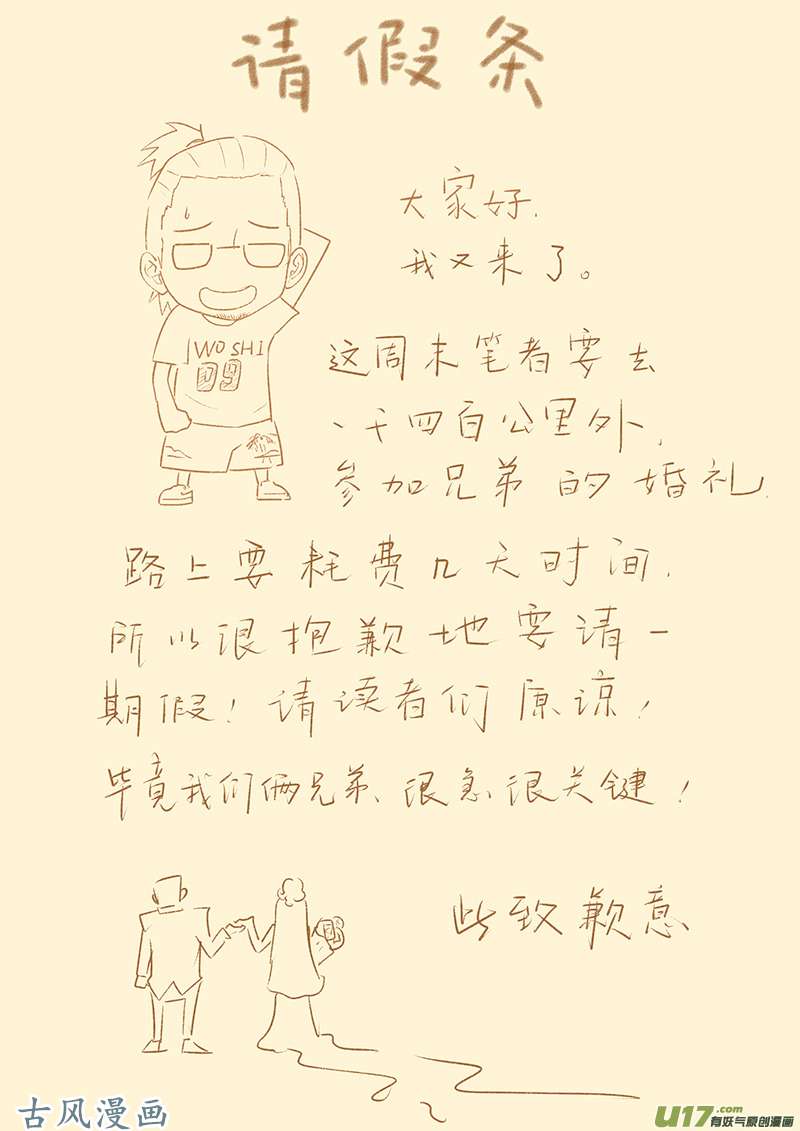 请假条
大家好,
我又来了。
WO SHI
09
这周末笔者要去
一千四百公里外,
参加兄弟的婚礼,
路上要耗费几天时间,
所以很抱歉地要请一
期假!请读者们原谅!
毕竟我们俩兄弟、很急很关键!
此致歉意
古风漫画
U17.com
有妖气原创漫画